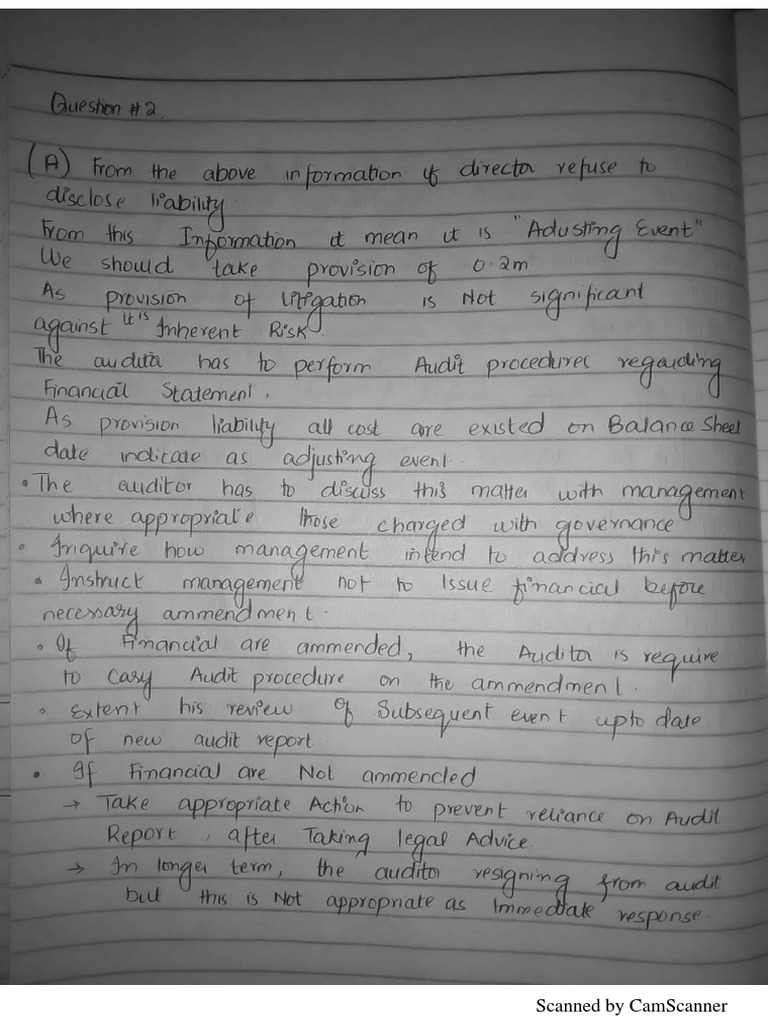 Question #2.
(A) From the above information if director refuse to
disclose liability.
From this Information it mean it is "Adusting Event"
We should take provision of 0.2m
As provision of litigation is Not significant
against it is Inherent Risk.
The auditor has to perform Audit procedures regarding
Financial Statement.
As provision liability all cost are existed on Balance Sheet
date indicate as adjusting event.
• The auditor has to discuss this matter with management
where appropriate those charged with governance
• Inquire how management intend to address this matter
• Instruct management not to Issue financial before
necessary ammendment.
• If Financial are ammended, the Auditor is require
to casy Audit procedure on the ammendment.
• Extent his review of Subsequent event upto date
of new audit report.
• If Financial are Not ammended
→ Take appropriate Action to prevent reliance on Audit
Report, after Taking legal Advice.
→ In longer term, the auditor resigning from audit
but this is Not appropriate as Immediate response.
Scanned by CamScanner